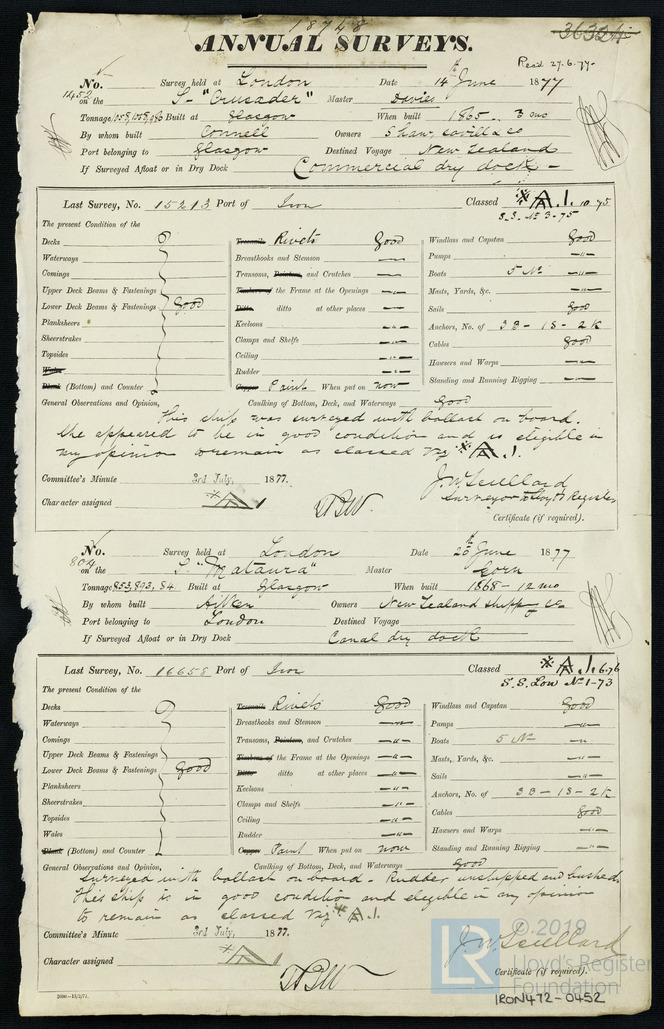 18748
36324
ANNUAL SURVEYS.
Recd 27.6.77
No. 1452 Survey held at London Date 14th June 1877
on the S- "Crusader" Master Davies
Tonnage 1058,1058,986 Built at Glasgow When built 1865 . 3 mo
By whom built Connell Owners Shaw, Savill & Co
Port belonging to Glasgow Destined Voyage New Zealand
If Surveyed Afloat or in Dry Dock Commercial dry dock -
Last Survey, No. 15213 Port of Iron Classed A.1. 10.75
S.S. No 3-75
The present Condition of the
Decks Treenails Rivets Good Windlass and Capstan Good
Waterways Breasthooks and Stemson Pumps "
Comings Transoms, Pointers, and Crutches Boats 5 No "
Upper Deck Beams & Fastenings Timbers of the Frame at the Openings " Masts, Yards, &c. "
Lower Deck Beams & Fastenings Good Ditto ditto at other places " Sails Good
Planksheers Keelsons " Anchors, No. of 3B - 1S - 2K
Sheerstrakes Clamps and Shelfs " Cables Good
Topsides Ceiling " Hawsers and Warps "
Wales Rudder " Standing and Running Rigging "
Plank (Bottom) and Counter Copper Paint When put on now
General Observations and Opinion, Caulking of Bottom, Deck, and Waterways Good
This ship was surveyed with ballast on board.
She appeared to be in good condition and is eligible in
my opinion to remain as classed Viz A.1.
Committee's Minute 3rd July, 1877. J.W. Scullard
Surveyor to Lloyd's Register
Character assigned A1
Certificate (if required).
No. 804 Survey held at London Date 20th June 1877
on the S. "Mataura" Master Corn
Tonnage 853,893,84 Built at Glasgow When built 1868 - 12 mo
By whom built Aitken Owners New Zealand Shipp-g Co
Port belonging to London Destined Voyage
If Surveyed Afloat or in Dry Dock Canal dry dock
Last Survey, No. 16658 Port of Iron Classed A.1. 6.76
S.S. Lon No 1-73
The present Condition of the
Decks Treenails Rivets Good Windlass and Capstan Good
Waterways Breasthooks and Stemson " Pumps "
Comings Transoms, Pointers, and Crutches " Boats 5 No "
Upper Deck Beams & Fastenings Timbers of the Frame at the Openings " Masts, Yards, &c. "
Lower Deck Beams & Fastenings Good Ditto ditto at other places " Sails "
Planksheers Keelsons " Anchors, No. of 3B - 1S - 2K
Sheerstrakes Clamps and Shelfs " Cables Good
Topsides Ceiling " Hawsers and Warps "
Wales Rudder " Standing and Running Rigging "
Plank (Bottom) and Counter Copper Paint When put on now
General Observations and Opinion, Caulking of Bottom, Deck, and Waterways Good
Surveyed with ballast on board - Rudder unshipped and bushed.
This ship is in good condition and eligible in my opinion
to remain as classed Viz A.1.
Committee's Minute 3rd July, 1877. J.W. Scullard
Character assigned A1
Certificate (if required).
2000.-13/2/71.
LR © 2019
Lloyd's Register
Foundation
IRON472-0452